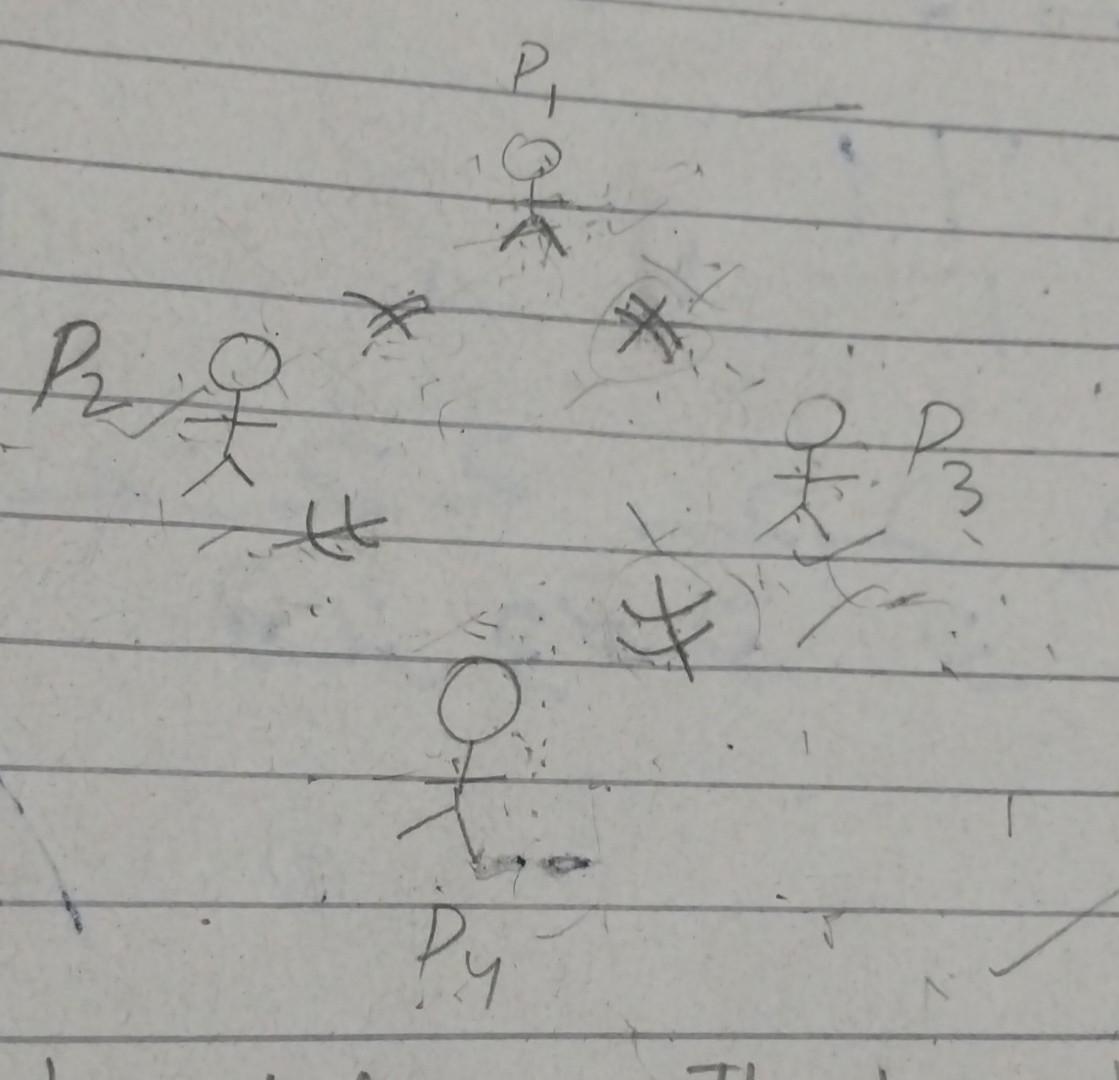 P1
P2
P3
P4